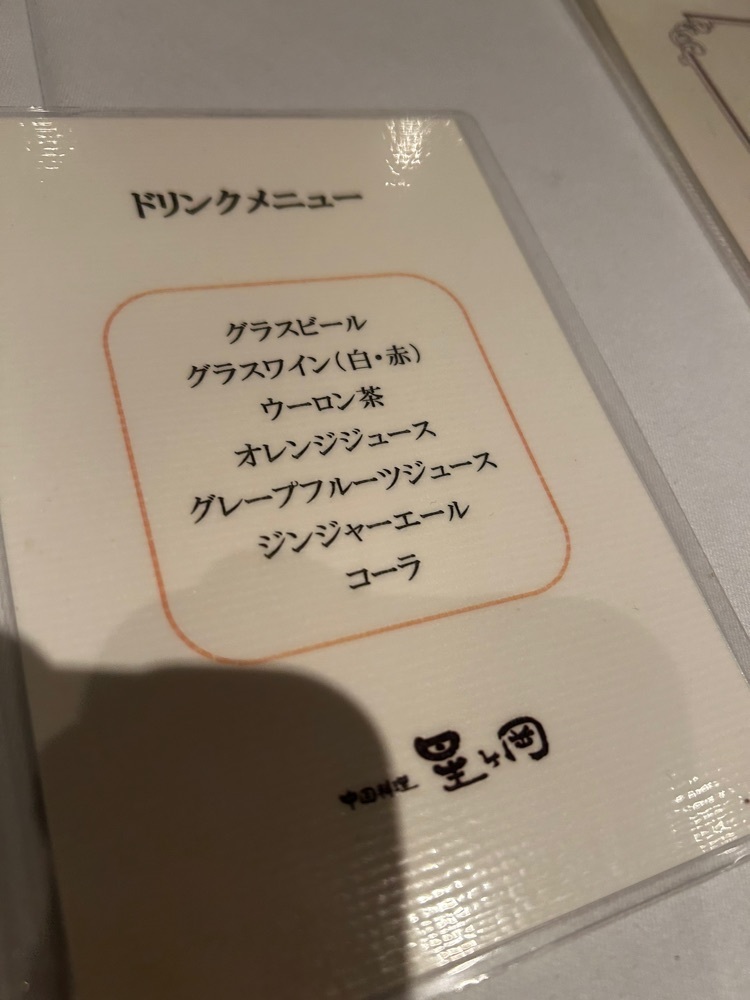 ドリンクメニュー
グラスビール
グラスワイン(白・赤)
ウーロン茶
オレンジジュース
グレープフルーツジュース
ジンジャーエール
コーラ
中国料理 星ヶ岡